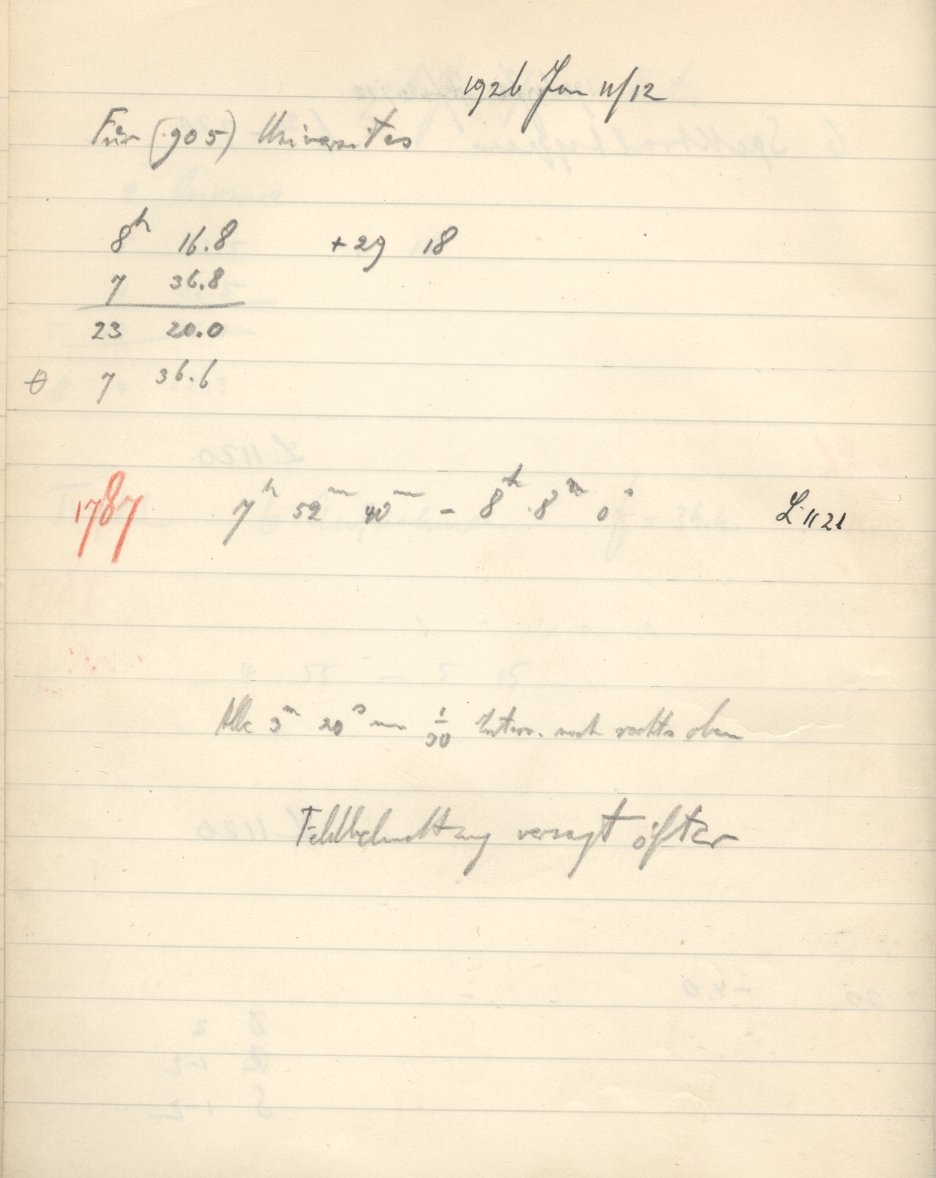 1926 Jan 11/12
Für (905) Universitas
8ʰ 16.8 +29 18
7 36.8
23 20.0
θ 7 36.6
1787 7ʰ 52ᵐ 40ᵐ – 8ʰ 8ᵐ 0ˢ L 1121
Alle 3ᵐ 20ˢ um 1/30 Interv. nach rechts oben
Feldbeleuchtung versagt öfter